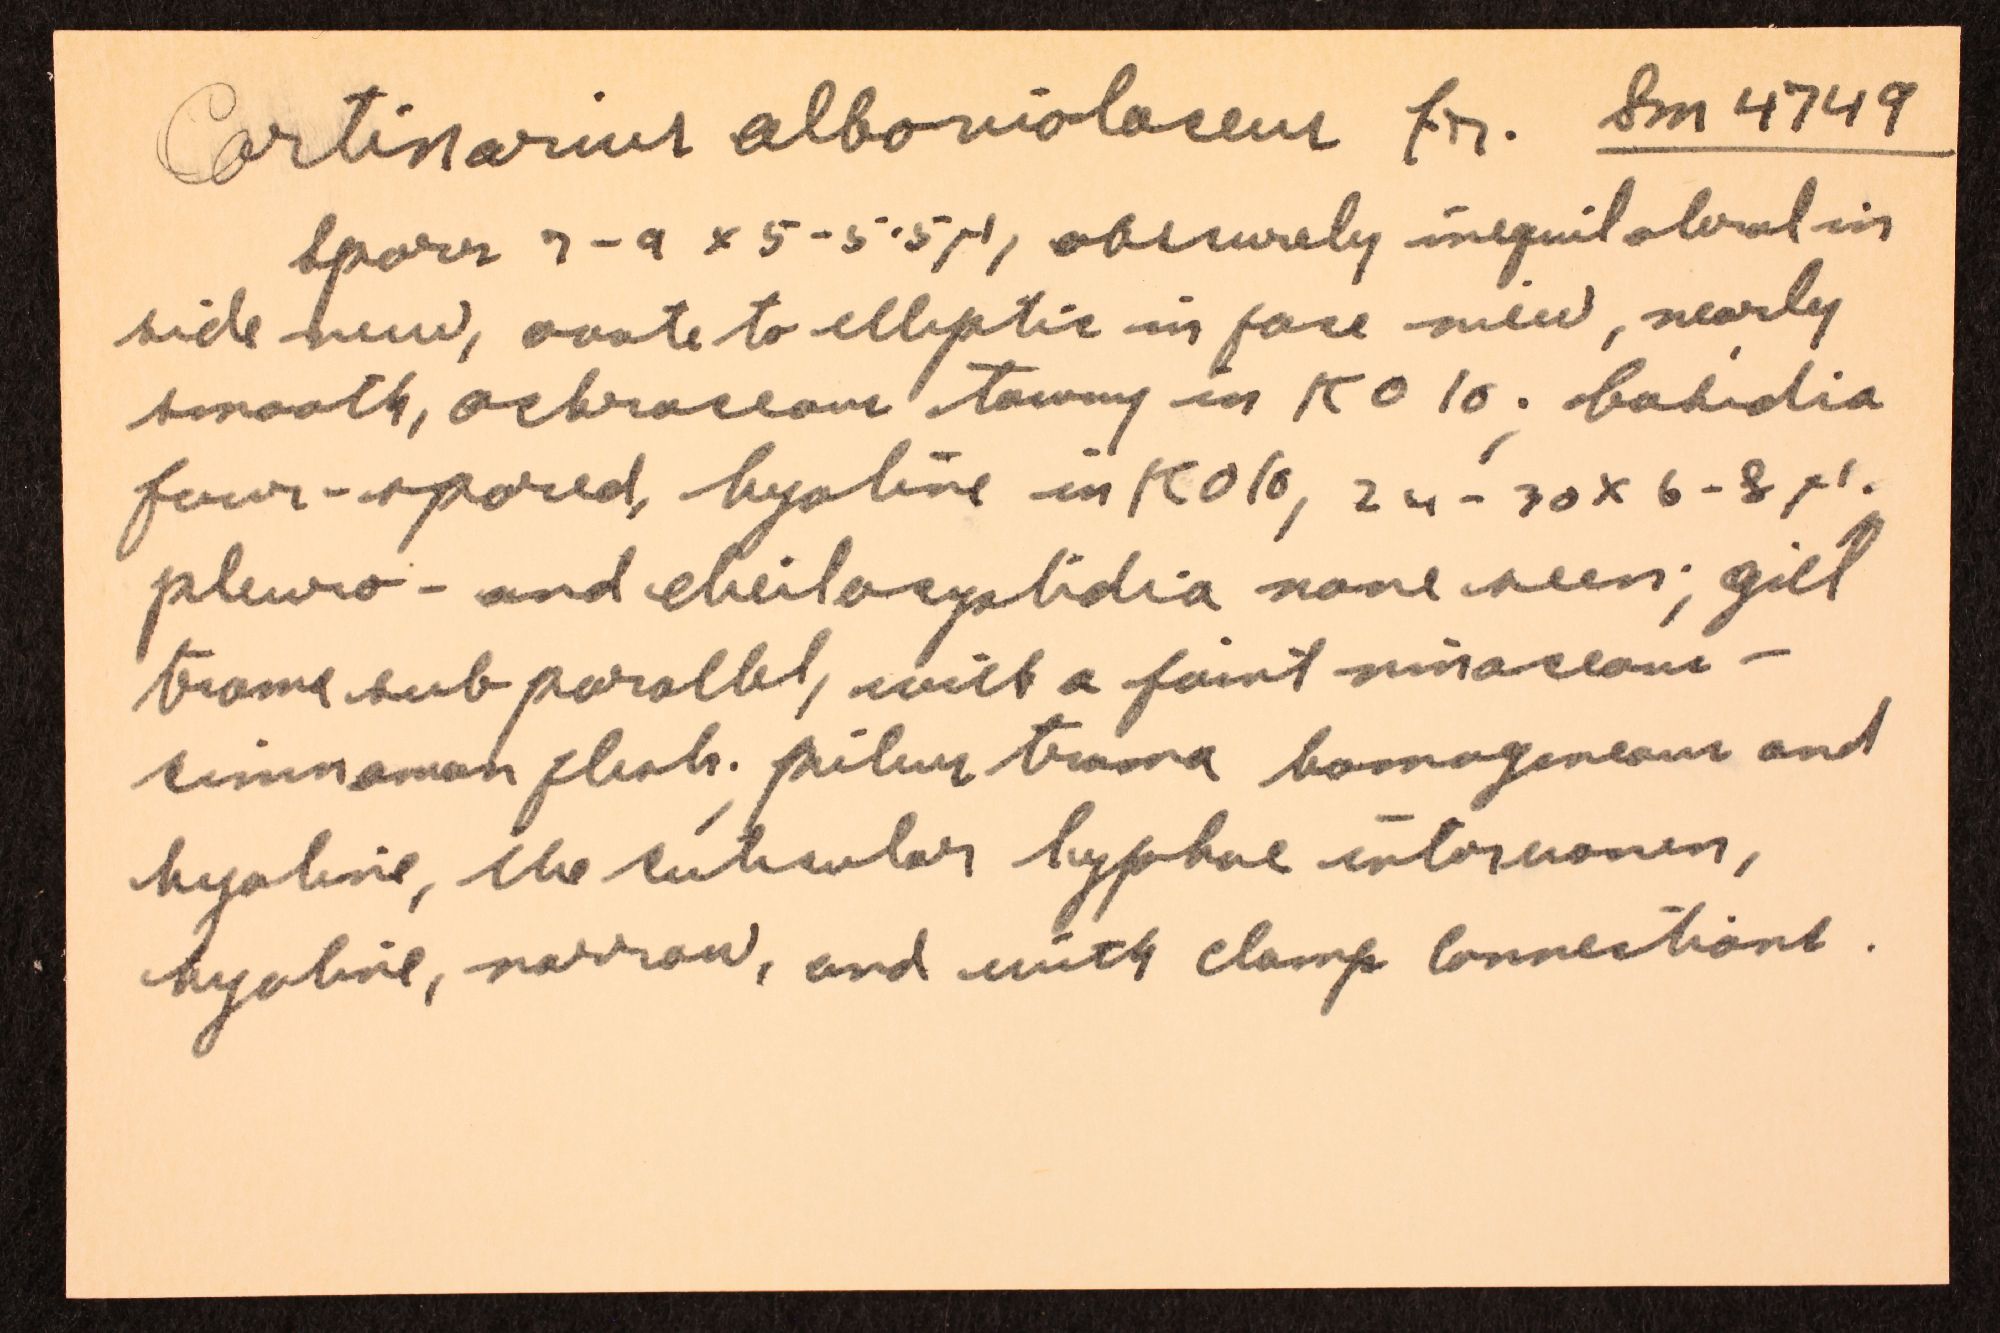 Cortinarius alboviolaceus Fr. Sm 4749
Spores 7-9 x 5-5.5 µ, obscurely inequilateral in
side view, ovate to elliptic in face view, nearly
smooth, ochraceous tawny in KOH; basidia
four-spored, hyaline in KOH, 24-30 x 6-8 µ.
pleuro- and cheilocystidia none seen; gill
trama subparallel, with a faint vinaceous-
cinnamon flesh; pileus trama homogeneous and
hyaline, the cuticular hyphae interwoven,
hyaline, narrow, and with clamp connections.